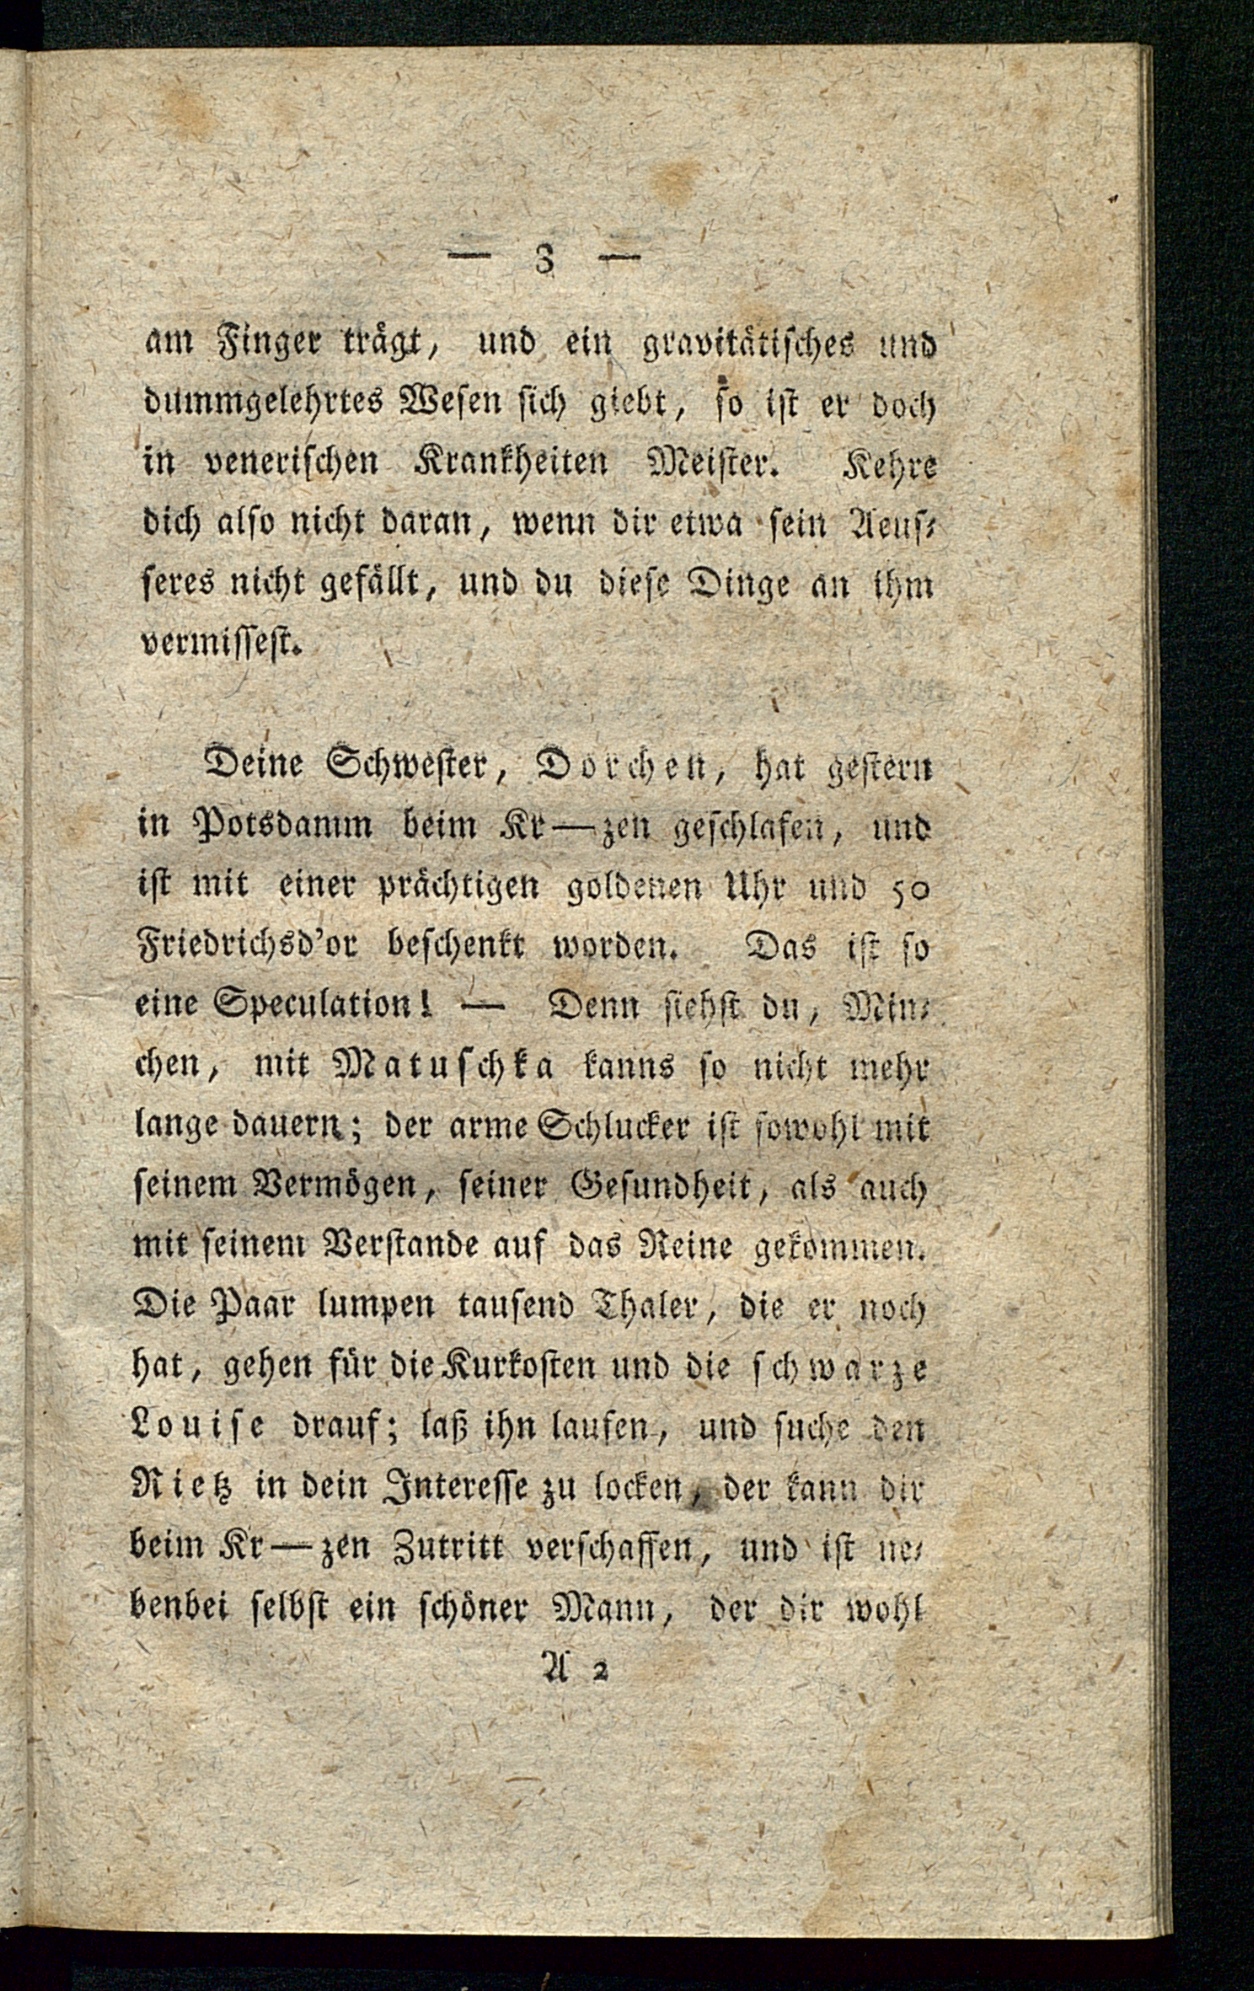 — 3 —
am Finger trägt, und ein gravitätisches und
dummgelehrtes Wesen sich giebt, so ist er doch
in venerischen Krankheiten Meister. Kehre
dich also nicht daran, wenn dir etwa sein Aeus-
seres nicht gefällt, und du diese Dinge an ihm
vermissest.
Deine Schwester, Dorchen, hat gestern
in Potsdamm beim Kr—zen geschlafen, und
ist mit einer prächtigen goldenen Uhr und 50
Friedrichsd'or beschenkt worden. Das ist so
eine Speculation! — Denn siehst du, Min-
chen, mit Matuschka kanns so nicht mehr
lange dauern; der arme Schlucker ist sowohl mit
seinem Vermögen, seiner Gesundheit, als auch
mit seinem Verstande auf das Reine gekommen.
Die Paar lumpen tausend Thaler, die er noch
hat, gehen für die Kurkosten und die schwarze
Louise drauf; laß ihn laufen, und suche den
Rietz in dein Interesse zu locken, der kann dir
beim Kr—zen Zutritt verschaffen, und ist ne-
benbei selbst ein schöner Mann, der dir wohl
A 2